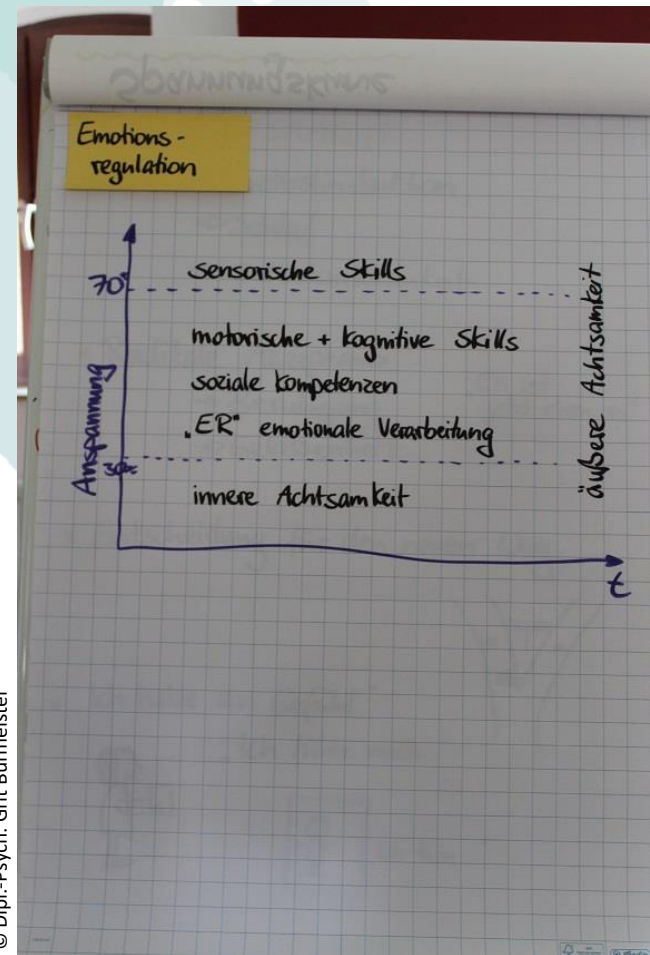 Emotions-
regulation
70%
sensorische Skills
motorische + kognitive Skills
soziale Kompetenzen
„ER" emotionale Verarbeitung
30%
innere Achtsamkeit
Anspannung
äußere Achtsamkeit
t
© Dipl.-Psych. Grit Burmeister